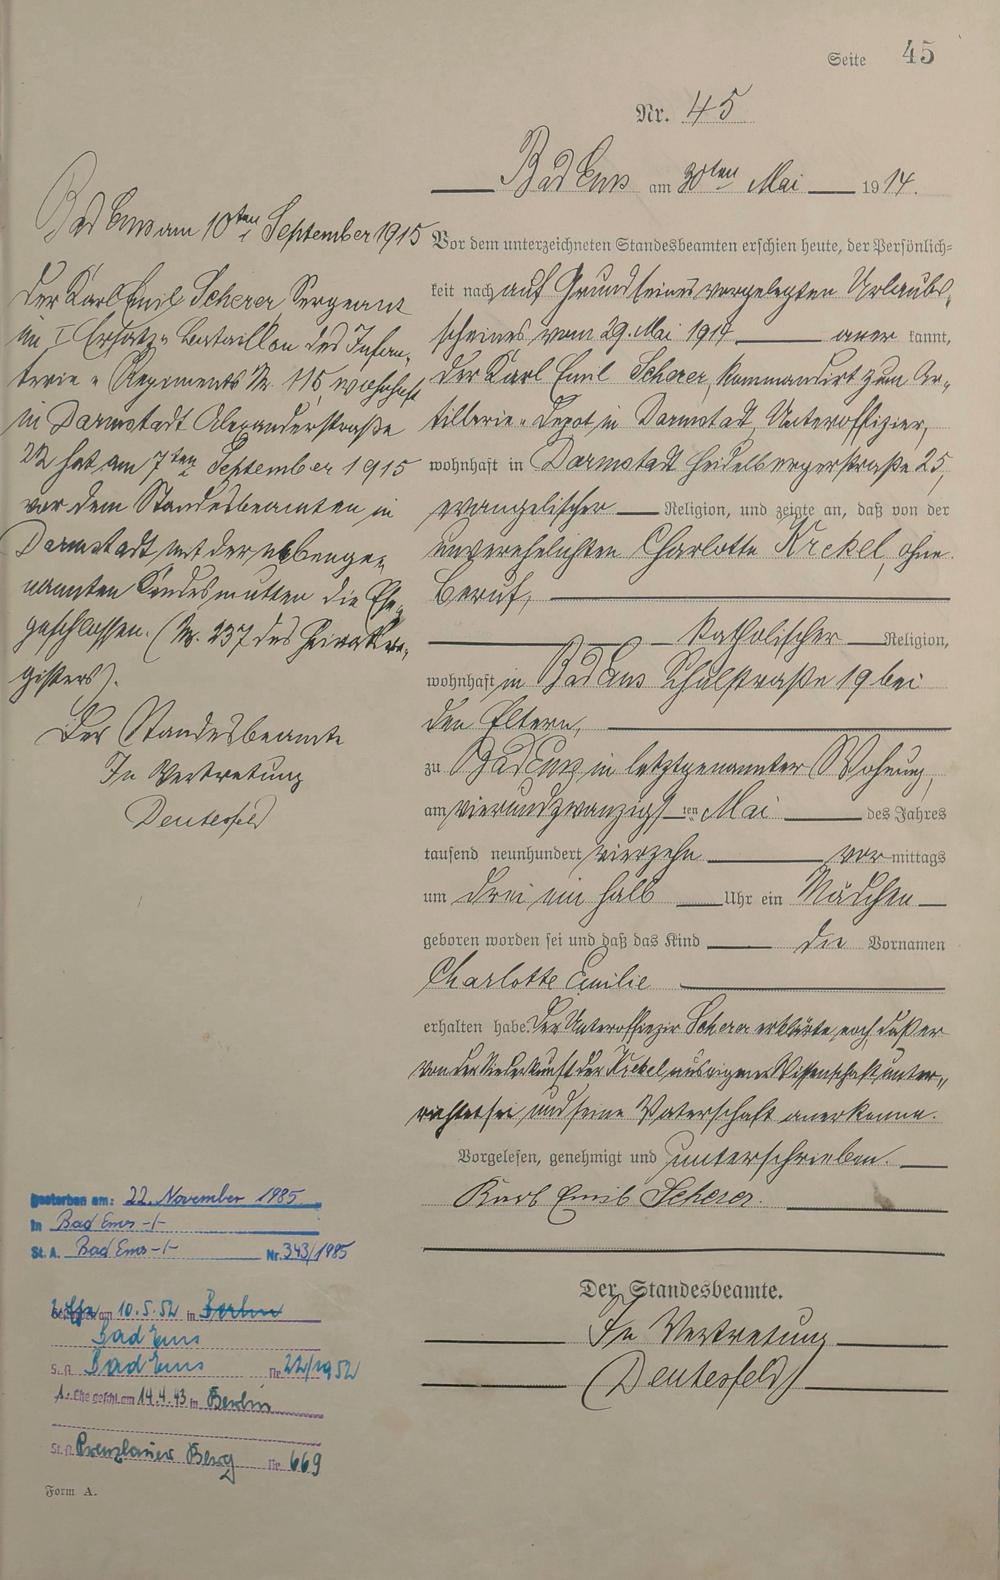 Seite 45
Nr. 45
Bad Ems am 30ten Mai 1914.
Vor dem unterzeichneten Standesbeamten erschien heute, der Persönlich=
keit nach auf Grund seines vorgelegten Urlaubs-
scheines vom 29. Mai 1914 aner kannt,
der Karl Emil Scherer, kommandirt zum Ar-
tillerie-Depot in Darmstadt, Unteroffizier,
wohnhaft in Darmstadt Heidelbergerstraße 25,
evangelischer Religion, und zeigte an, daß von der
unverehelichten Charlotte Krekel, ohne
Beruf,
katholischer Religion,
wohnhaft in Bad Ems Schulstraße 19 bei
den Eltern,
zu Bad Ems in letztgenannter Wohnung,
am vierundzwanzigs ten Mai des Jahres
tausend neunhundert vierzehn vor mittags
um drei ein halb Uhr ein Mädchen
geboren worden sei und daß das Kind die Vornamen
Charlotte Emilie
erhalten habe. Der Unteroffizir Scherer erklärte noch, daß er
von der Niederkunft der Krekel aus eigener Wissenschaft unter-
richtet sei und seine Vaterschaft anerkenne.
Vorgelesen, genehmigt und unterschrieben.
Karl Emil Scherer.
Der Standesbeamte.
In Vertretung
(Deutesfeld)
Bad Ems am 10ten September 1915
Der Karl Emil Scherer, Sergeant
im I Ersatz-Bataillon des Infan-
terie-Regiments Nr. 115, wohnhaft
in Darmstadt Alexanderstraße
22 hat am 7ten September 1915
vor dem Standesbeamten in
Darmstadt mit der nebenge-
nannten Kindesmutter die Ehe
geschlossen. (Nr. 237 des Heiratsre-
gisters).
Der Standesbeamte
In Vertretung
Deutesfeld
gestorben am: 22. November 1985
in Bad Ems -/-
St. A. Bad Ems -/- Nr. 343/1985
2. Ehe am 10.5.52 in Berlin
Bad Ems
S. A. Bad Ems Nr. 22/1952
1. Ehe geschl. am 14.4.43 in Berlin
St. A. Prenzlauer Berg Nr. 669
Form A.